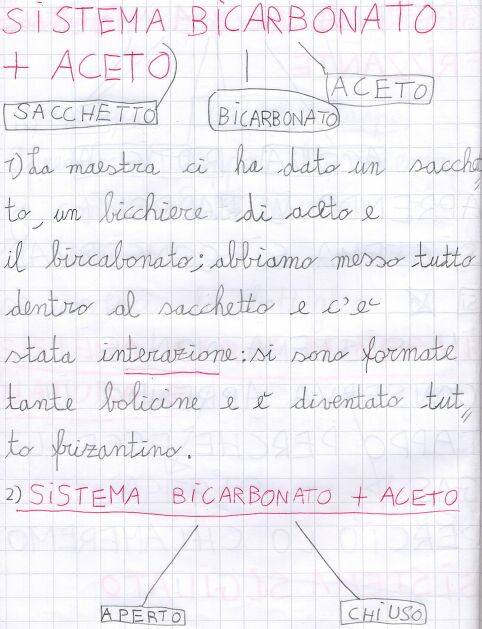 SISTEMA BICARBONATO
+ ACETO
ACETO
SACCHETTO
BICARBONATO
1) La maestra ci ha dato un sacchet
to, un bicchiere di aceto e
il bircabonato; abbiamo messo tutto
dentro al sacchetto e c'e'
stata interazione: si sono formate
tante bolicine e e' diventato tut
to frizantino.
2) SISTEMA BICARBONATO + ACETO
APERTO
CHIUSO